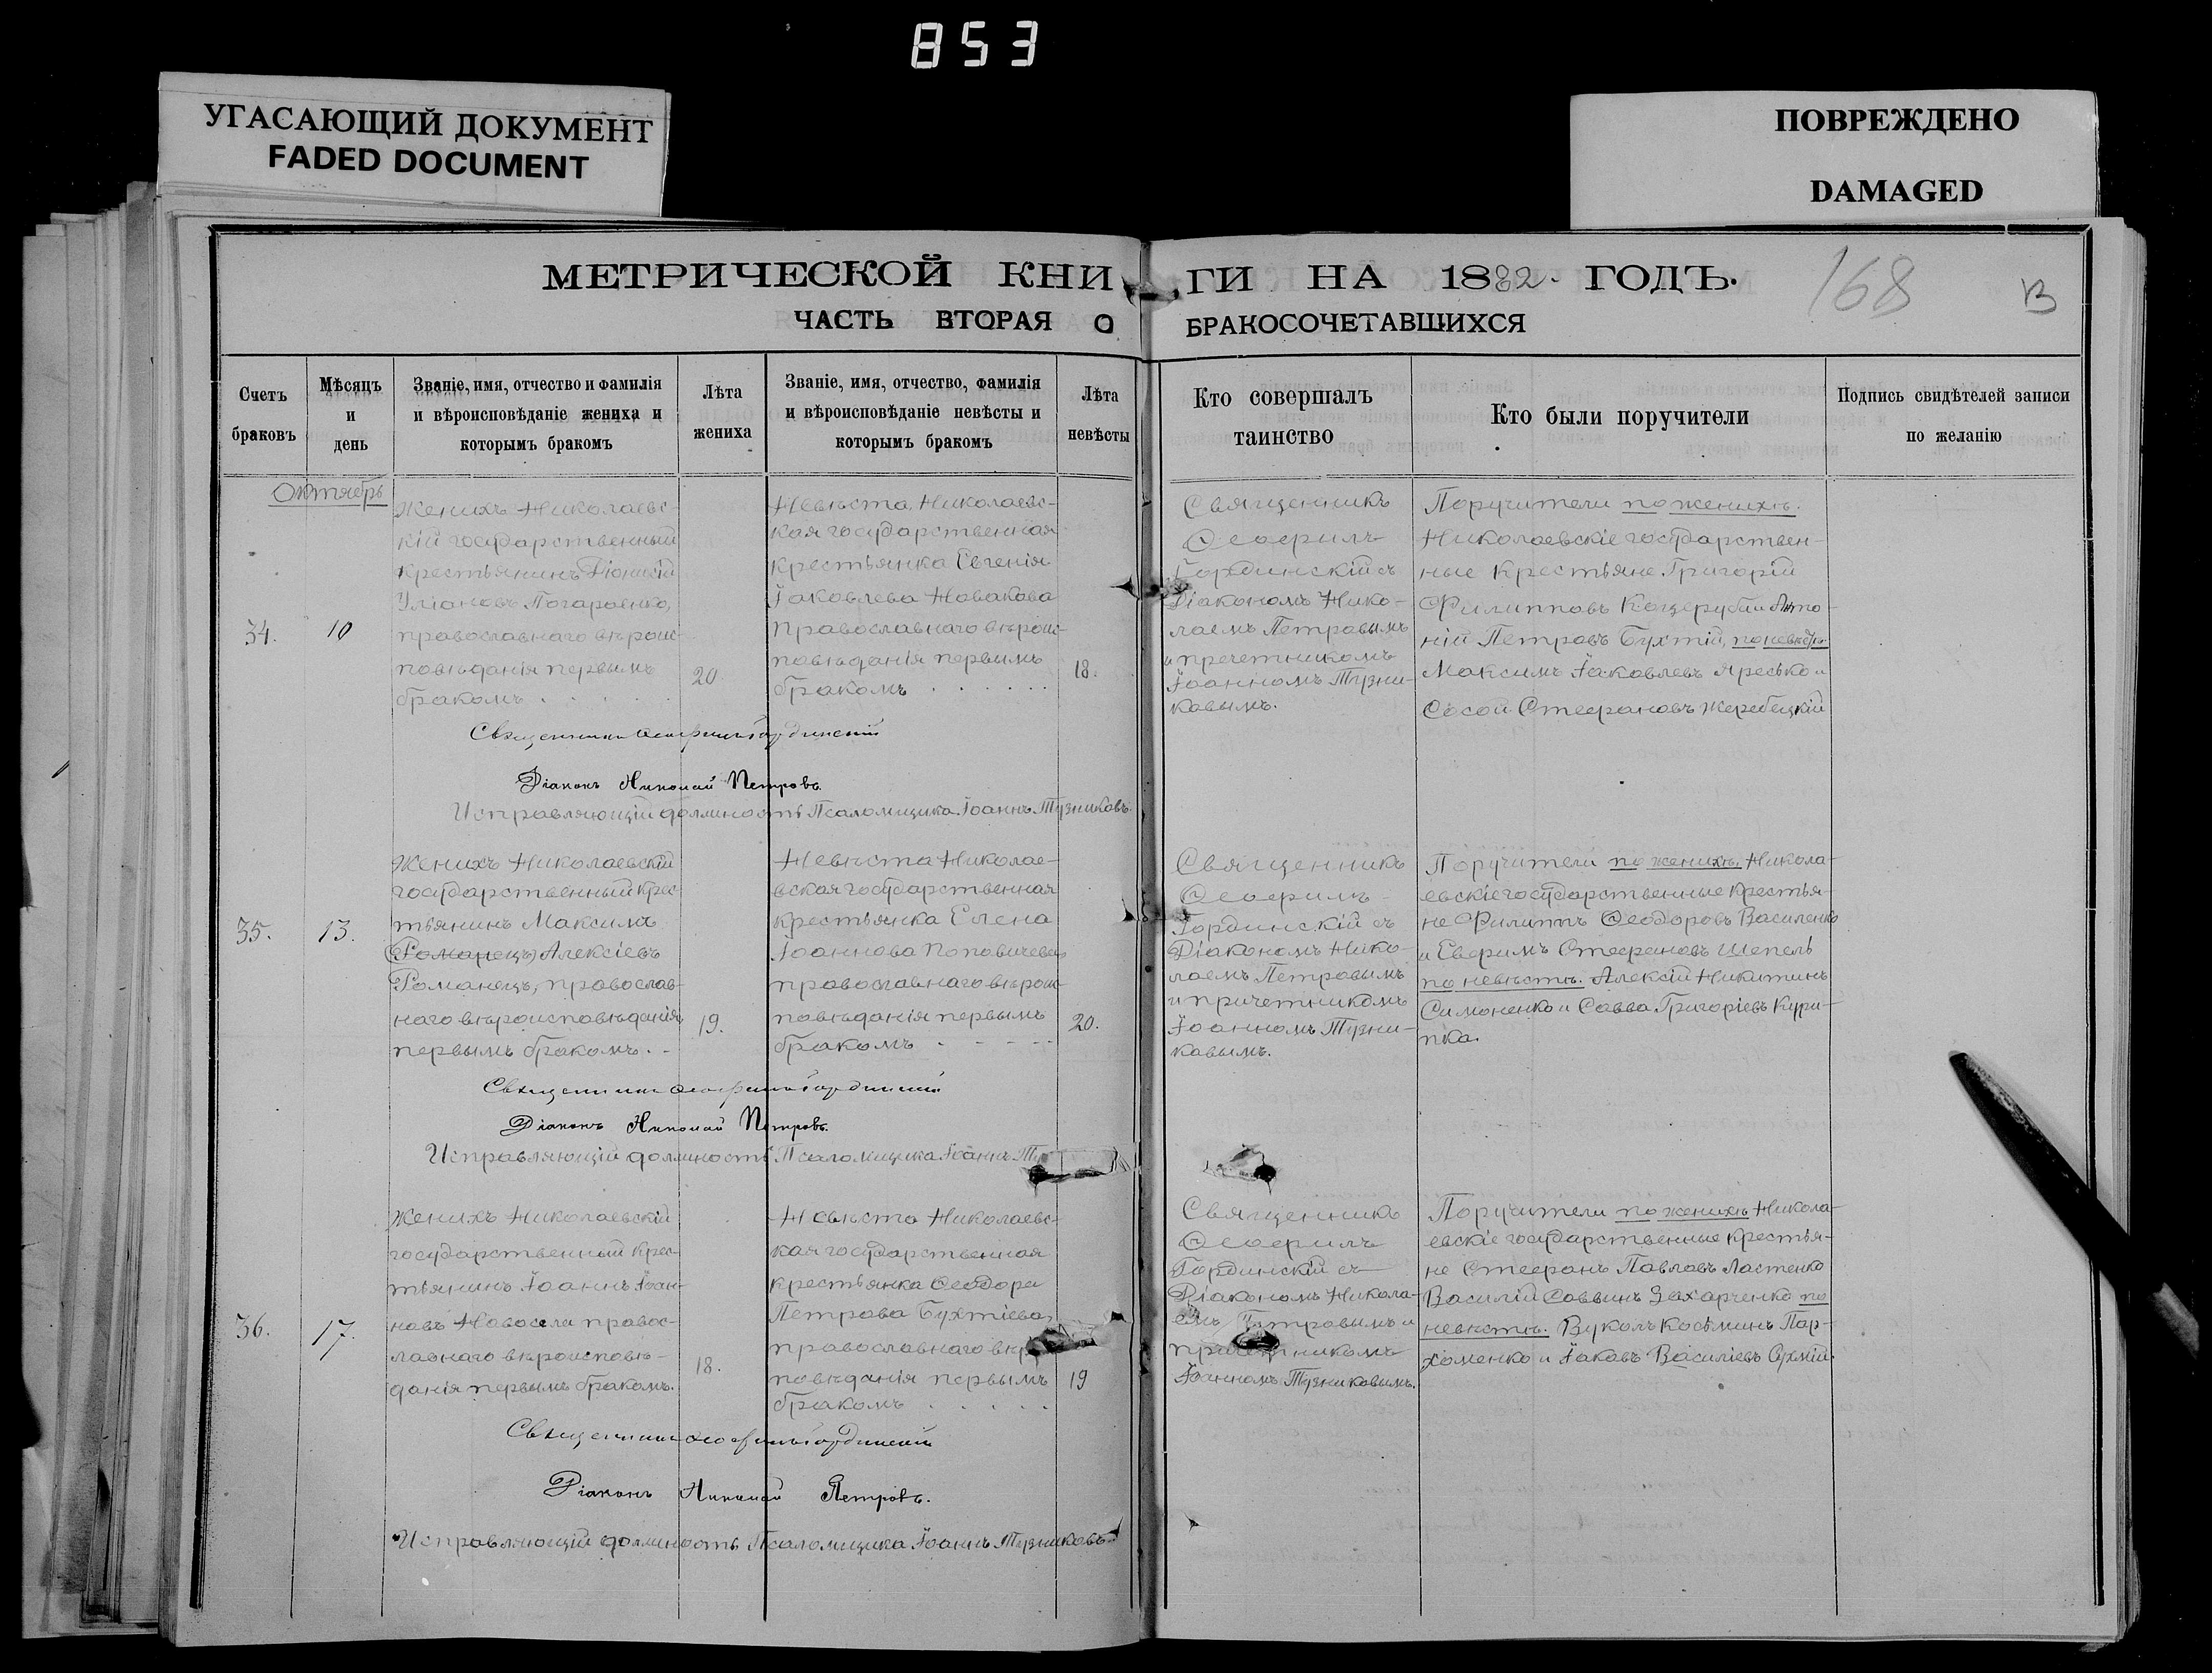 853
УГАСАЮЩИЙ ДОКУМЕНТ
FADED DOCUMENT
ПОВРЕЖДЕНО
DAMAGED
МЕТРИЧЕСКОЙ КНИГИ НА 1882 ГОДЪ.
168
ЧАСТЬ ВТОРАЯ О БРАКОСОЧЕТАВШИХСЯ
Счетъ
браковъ
Мѣсяцъ
и
день
Званіе, имя, отчество и фамилія
и вѣроисповѣданіе жениха и
которымъ бракомъ
Лѣта
жениха
Званіе, имя, отчество, фамилія
и вѣроисповѣданіе невѣсты и
которымъ бракомъ
Лѣта
невѣсты
Кто совершалъ
таинство
Кто были поручители
Подпись свидѣтелей записи
по желанію
Октябрь
34.
10
Женихъ Николаевс-
кій государственный
крестьянинъ Діонисій
Уліановъ Погаравко,
православнаго вѣроис-
повѣданія первымъ
бракомъ . . . .
20
Невѣста Николаевс-
кая государственная
крестьянка Евгенія
Іаковлева Новакова
православнаго вѣроис-
повѣданія первымъ
бракомъ . . . . . .
18.
Священникъ
Ѳеофилъ
Гординскій съ
Діакономъ Нико-
лаемъ Петровымъ
и пречетникомъ
Іоанномъ Тузни-
ковымъ.
Поручители по женихѣ.
Николаевскіе государствен-
ные крестьяне Григорій
Филипповъ Коцерубаи Анто-
ній Петровъ Бухтій, по невѣстѣ
Максимъ Іаковлевъ Яресько и
Сосой Стефановъ Жеребецкій
Священникъ Ѳеофилъ Гординскій
Діаконъ Николай Петровъ.
Исправляющій должность Псаломщика Іоаннъ Тузниковъ.
35.
13.
Женихъ Николаевскій
государственный крес-
тьянинъ Максимъ
(Романецъ) Алексіевъ
Романецъ, православ-
наго вѣроисповѣданія
первымъ бракомъ. -
19.
Невѣста Николае-
вская государственная
крестьянка Елена
Іоаннова Поповичева
православнаго вѣроис-
повѣданія первымъ
бракомъ - - - - -
20.
Священникъ
Ѳеофилъ
Гординскій съ
Діакономъ Нико-
лаемъ Петровымъ
и причетникомъ
Іоанномъ Тузни-
ковымъ.
Поручители по женихѣ, Никола-
евскіе государственные крестья-
не Филиппъ Ѳеодоровъ Василенко
и Евфимъ Стефановъ Шепель
по невѣстѣ. Алексій Никитинъ
Симоненко и Савва Григоріевъ Кури-
пка.
Священникъ Ѳеофилъ Гординскій
Діаконъ Николай Петровъ.
Исправляющій должность Псаломщика Іоаннъ Ту
36.
17.
Женихъ Николаевскій
государственный крес-
тьянинъ Іоаннъ Іоан-
новъ Новосела правос-
лавнаго вѣроисповѣ-
данія первымъ бракомъ.
18.
Невѣста Николаевс-
кая государственная
крестьянка Ѳеодора
Петрова Бухтіева,
православнаго вѣр
повѣданія первымъ
бракомъ . . . . .
19
Священникъ
Ѳеофилъ
Гординскій съ
Діакономъ Никола-
емъ Петровымъ и
причетникомъ
Іоанномъ Тузниковымъ.
Поручители по женихѣ Никола-
евскіе государственные крестья-
не Стефанъ Павловъ Ластенко
Василій Саввинъ Захарченко по
невѣстѣ. Вуколъ Косьминъ Пар-
хоменко и Іаковъ Василіевъ
Священникъ Ѳеофилъ Гординскій
Діаконъ Николай Петровъ.
Исправляющій должность Псаломщика Іоаннъ Тузниковъ